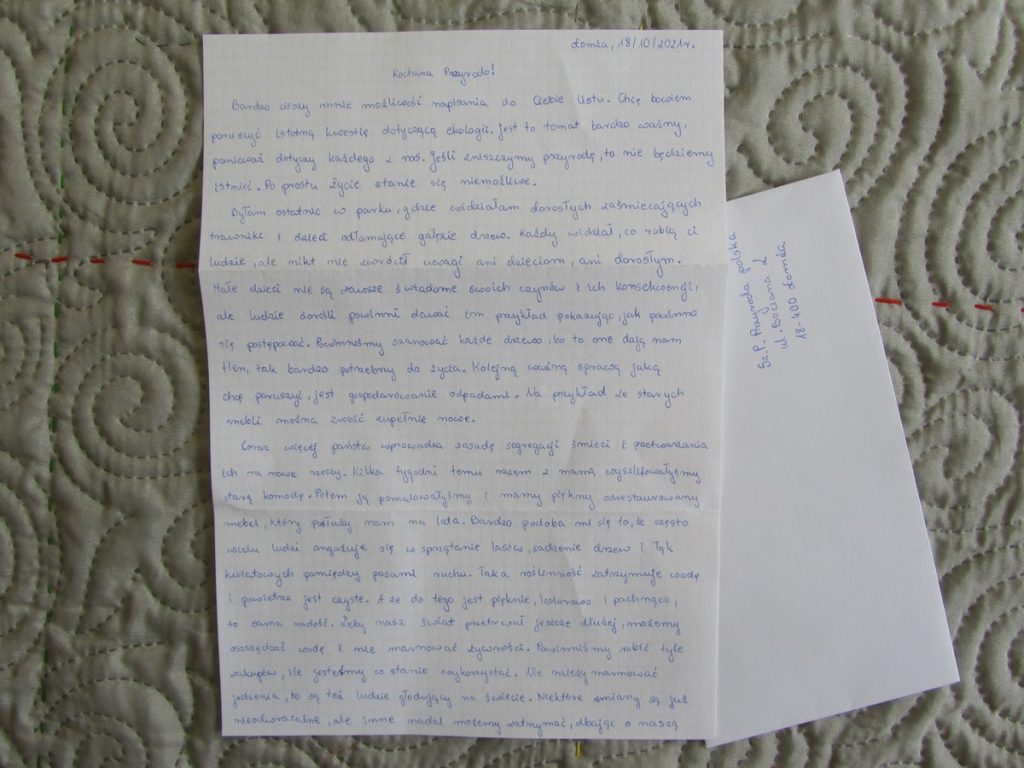 Łomża, 18/10/2021r.
Kochana Przyrodo!
Bardzo cieszy mnie możliwość napisania do Ciebie listu. Chcę bowiem
poruszyć istotną kwestię dotyczącą ekologii. Jest to temat bardzo ważny,
ponieważ dotyczy każdego z nas. Jeśli zniszczymy przyrodę, to nie będziemy
istnieć. Po prostu życie stanie się niemożliwe.
Byłam ostatnio w parku, gdzie widziałam dorosłych zaśmiecających
trawniki i dzieci odłamujące gałęzie drzew. Każdy widział, co robią ci
ludzie, ale nikt nie zwrócił uwagi ani dzieciom, ani dorosłym.
Małe dzieci nie są zawsze świadome swoich czynów i ich konsekwencji,
ale ludzie dorośli powinni dawać im przykład pokazując, jak powinno
się postępować. Powinniśmy szanować każde drzewo, bo to one dają nam
tlen, tak bardzo potrzebny do życia. Kolejną ważną sprawą jaką
chcę poruszyć, jest gospodarowanie odpadami. Na przykład ze starych
mebli można zrobić zupełnie nowe.
Coraz więcej państw wprowadza zasadę segregacji śmieci i przetwarzania
ich na nowe rzeczy. Kilka tygodni temu razem z mamą wyszlifowałyśmy
starą komodę. Potem ją pomalowałyśmy i mamy piękny odrestaurowany
mebel, który posłuży nam na lata. Bardzo podoba mi się to, że często
wielu ludzi angażuje się w sprzątanie lasów, sadzenie drzew i łąk
kwiatowych pomiędzy pasami ruchu. Taka roślinność zatrzymuje wodę
i powietrze jest czyste. A że do tego jest pięknie, kolorowo i pachnąco,
to sama radość. Żeby nasz świat przetrwał jeszcze dłużej, możemy
oszczędzać wodę i nie marnować żywności. Powinniśmy robić tyle
zakupów, ile jesteśmy w stanie wykorzystać. Nie należy marnować
jedzenia, bo są też ludzie głodujący na świecie. Niektóre zmiany są już
nieodwracalne, ale inne nadal możemy zatrzymać, dbając o naszą
Sz.P. Przyroda polska
ul. Bociana 2
18-400 Łomża